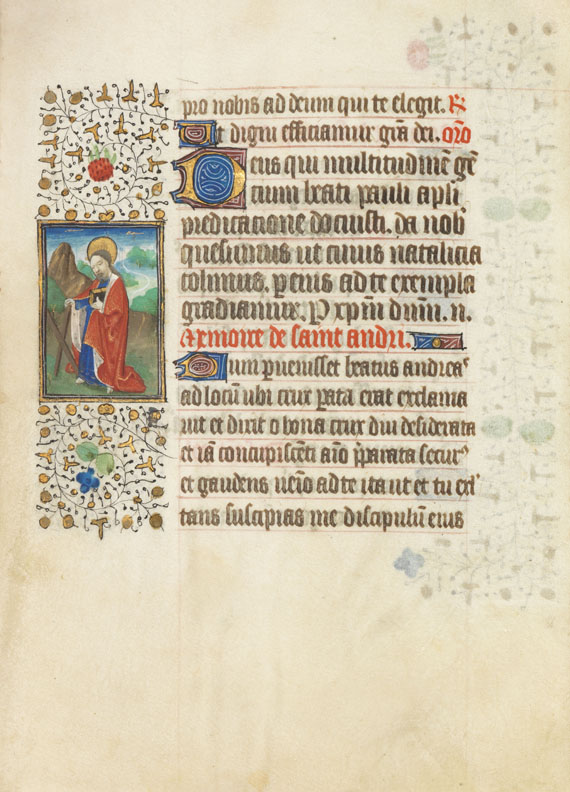 pro nobis ad deum qui te elegit. R
Ut digni efficiamur grã dei. orõ
Deus qui multitudinẽ gẽ
cium beati pauli apli
predicatione docuisti. da nob
quesumus ut cuius natalicia
colimus. petius ad te exempla
gradiamur. P xpm dnm. n.
Memoire de saint andri.
Cum peruenisset beatus andreas
ad locũ ubi crux pata erat exclama
uit et dixit o bona crux diu desiderata
et iã concupiscẽti aĩo pparata securꝰ
et gaudens uẽio ad te ita ut et tu exl
tans suscipias me discipulũ eius